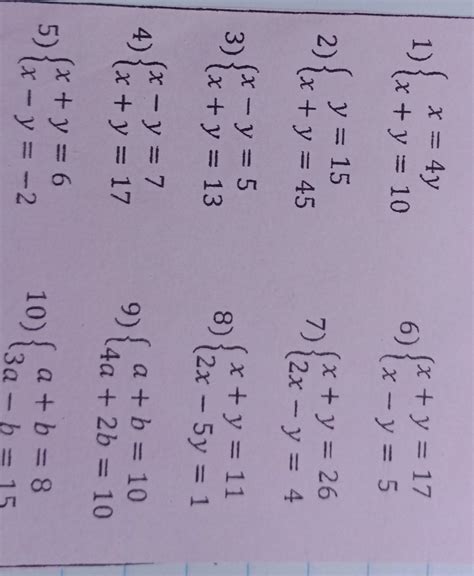 1) { x = 4y
x + y = 10
2) { y = 15
x + y = 45
3) { x − y = 5
x + y = 13
4) { x − y = 7
x + y = 17
5) { x + y = 6
x − y = −2
6) { x + y = 17
x − y = 5
7) { x + y = 26
2x − y = 4
8) { x + y = 11
2x − 5y = 1
9) { a + b = 10
4a + 2b = 10
10) { a + b = 8
3a − b = 15